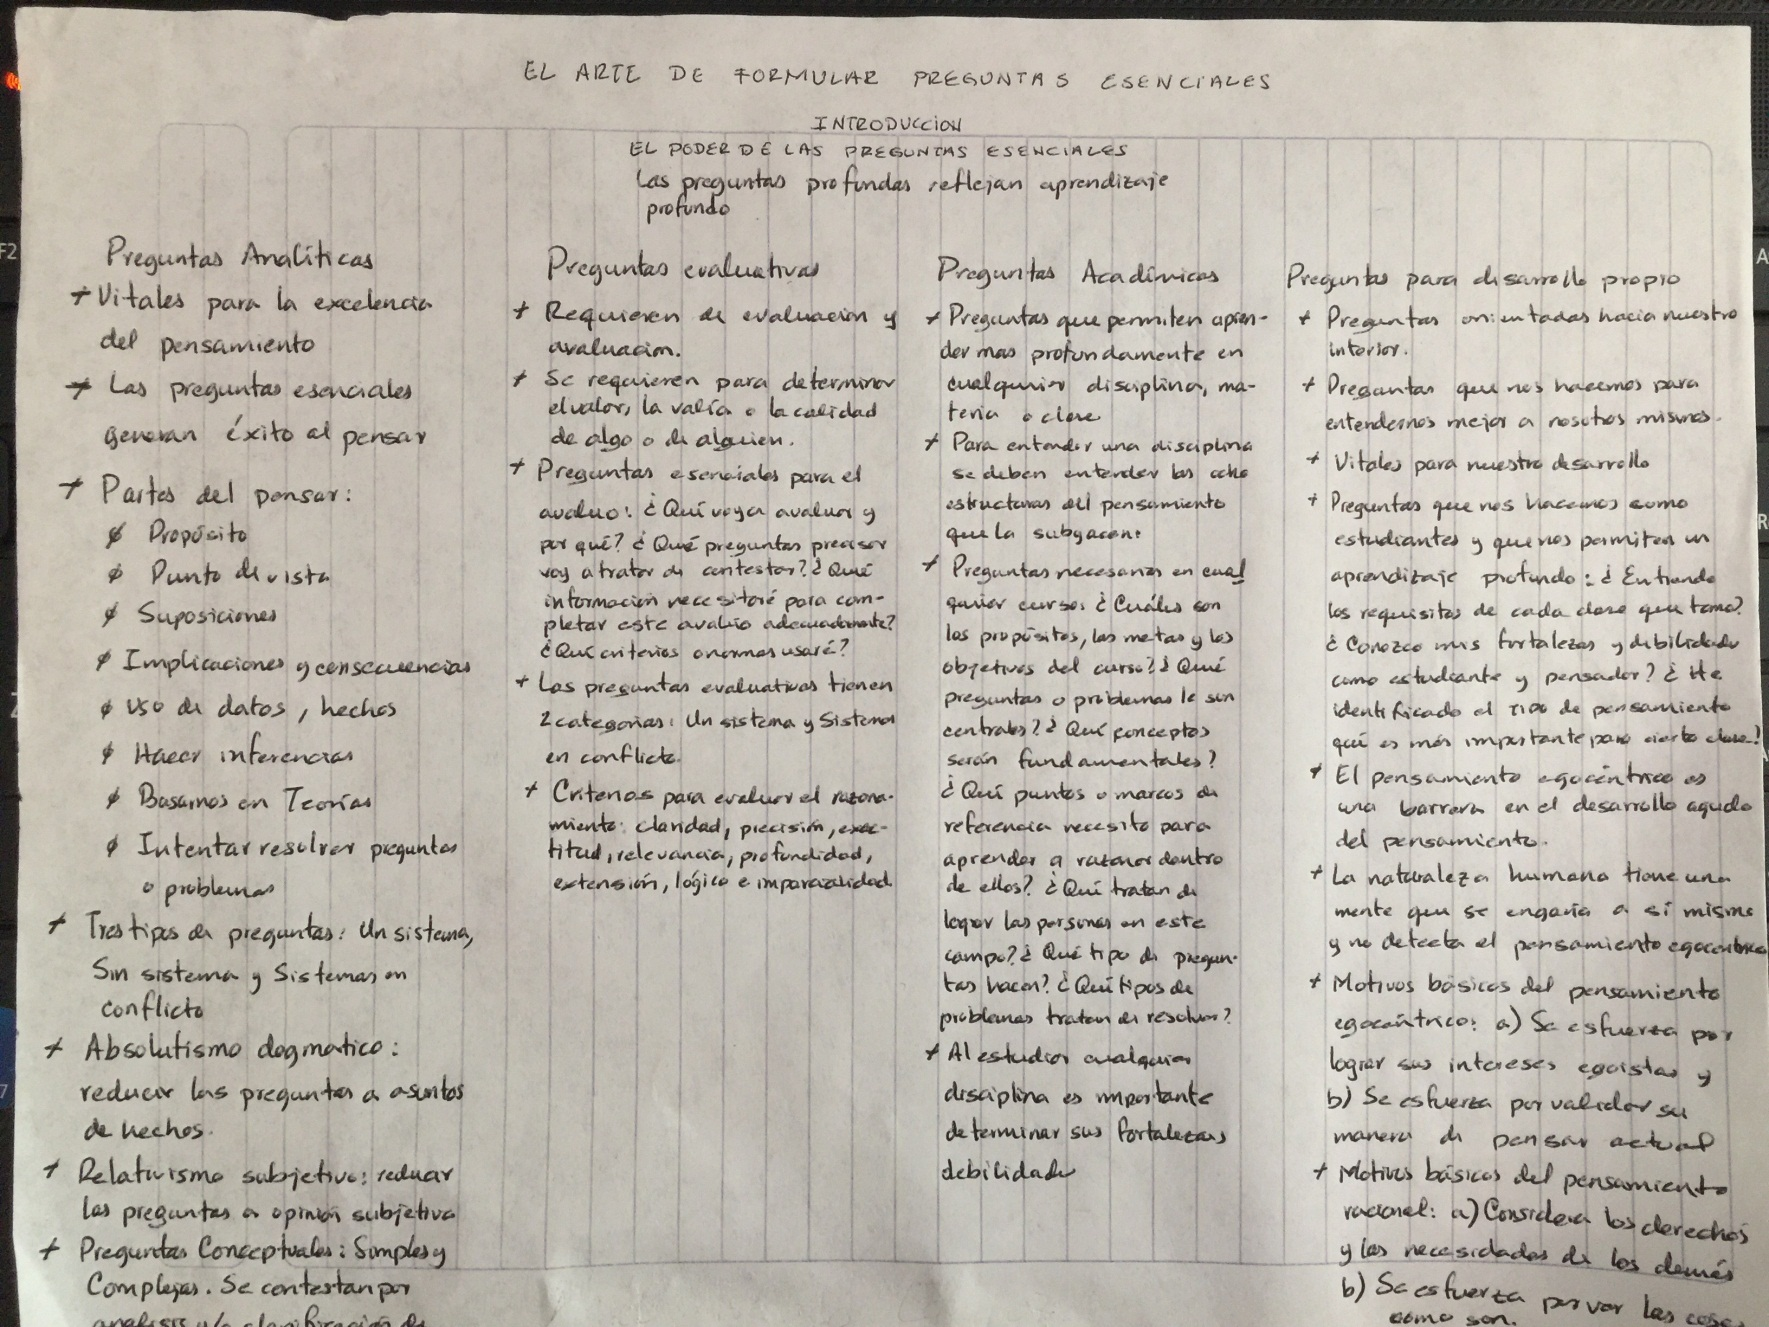 EL ARTE DE FORMULAR PREGUNTAS ESENCIALES
INTRODUCCION
EL PODER DE LAS PREGUNTAS ESENCIALES
Las preguntas profundas reflejan aprendizaje
profundo
Preguntas Analíticas
+ Vitales para la excelencia
del pensamiento
+ Las preguntas esenciales
generan éxito al pensar
+ Partes del pensar:
Propósito
Punto de vista
Suposiciones
Implicaciones y consecuencias
Uso de datos, hechos
Hacer inferencias
Basarnos en Teorías
Intentar resolver preguntas
o problemas
+ Tres tipos de preguntas: Un sistema,
Sin sistema y Sistemas en
conflicto
+ Absolutismo dogmatico:
reducir las preguntas a asuntos
de hechos.
+ Relativismo subjetivo: reducir
las preguntas a opinión subjetiva
+ Preguntas Conceptuales: Simples y
Complejas. Se contestan por
analisis y/o clarificación de
Preguntas evaluativas
+ Requieren de evaluacion y
avaluacion.
+ Se requieren para determinar
el valor, la valía o la calidad
de algo o de alguien.
+ Preguntas esenciales para el
avaluo: ¿Qué voy a avaluar y
por qué? ¿Qué preguntas precisar
voy a tratar de contestar? ¿Qué
información necesitaré para com-
pletar este avalúo adecuadamente?
¿Qué criterios o normas usaré?
+ Las preguntas evaluativas tienen
2 categorias: Un sistema y Sistemas
en conflicto.
+ Criterios para evaluar el razona-
miento: claridad, precisión, exac-
titud, relevancia, profundidad,
extensión, lógica e imparcialidad.
Preguntas Académicas
+ Preguntas que permiten apren-
der mas profundamente en
cualquier disciplina, ma-
teria o clase
+ Para entender una disciplina
se deben entender las ocho
estructuras del pensamiento
que la subyacen.
+ Preguntas necesarias en cual
quier curso: ¿Cuáles son
los propósitos, las metas y los
objetivos del curso? ¿Qué
preguntas o problemas le son
centrales? ¿Qué conceptos
serán fundamentales?
¿Qué puntos o marcos de
referencia necesito para
aprender a razonar dentro
de ellos? ¿Qué tratan de
lograr las personas en este
campo? ¿Qué tipo de pregun-
tas hacen? ¿Qué tipos de
problemas tratan de resolver?
+ Al estudiar cualquier
disciplina es importante
determinar sus fortalezas y
debilidades
Preguntas para disarrollo propio
+ Preguntas orientadas hacia nuestro
interior.
+ Preguntas que nos hacemos para
entendernos mejor a nosotros mismos.
+ Vitales para nuestro desarrollo
+ Preguntas que nos hacemos como
estudiantes y que nos permiten un
aprendizaje profundo: ¿Entiendo
los requisitos de cada clase que tomo?
¿Conozco mis fortalezas y debilidades
como estudiante y pensador? ¿He
identificado el tipo de pensamiento
qué es más importante para cierta clase?
+ El pensamiento egocéntrico es
una barrera en el desarrollo agudo
del pensamiento.
+ La naturaleza humana tiene una
mente que se engaña a sí misma
y no detecta el pensamiento egocentrico
+ Motivos básicos del pensamiento
egocéntrico: a) Se esfuerza por
lograr sus intereses egoístas y
b) Se esfuerza por validar su
manera de pensar actual
+ Motivos básicos del pensamiento
racional: a) Considera los derechos
y las necesidades de los demás
b) Se esfuerza por ver las cosas
como son.